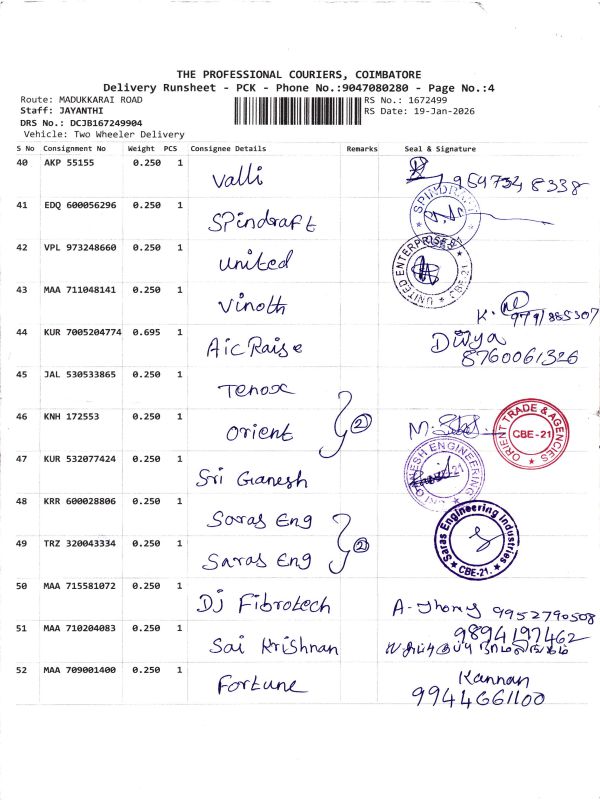 THE PROFESSIONAL COURIERS, COIMBATORE
Delivery Runsheet - PCK - Phone No.:9047080280 - Page No.:4
Route: MADUKKARAI ROAD
RS No.: 1672499
Staff: JAYANTHI
RS Date: 19-Jan-2026
DRS No.: DCJB167249904
Vehicle: Two Wheeler Delivery
S No Consignment No Weight PCS Consignee Details Remarks Seal & Signature
40 AKP 55155 0.250 1 Valli 9597348338
41 EDQ 600056296 0.250 1 Spindraft SPINDRAFT
42 VPL 973248660 0.250 1 United UNITED ENTERPRISES CBE-21
43 MAA 711048141 0.250 1 Vinoth K.
44 KUR 7005204774 0.695 1 Aic Raise Divya
8760061326
45 JAL 530533865 0.250 1 Tenox
46 KNH 172553 0.250 1 Orient 2 M. ORIENT TRADE & AGENCIES CBE-21
47 KUR 532077424 0.250 1 Sri Ganesh SRI GANESH ENGINEERING
48 KRR 600028806 0.250 1 Saras Eng
49 TRZ 320043334 0.250 1 Saras Eng 2 Saras Engineering Industries CBE-21.
50 MAA 715581072 0.250 1 DJ Fibrotech A-Jhony 9952790508
51 MAA 710204083 0.250 1 Sai Krishnan 9894197462
52 MAA 709001400 0.250 1 Fortune Kannan
9944661100